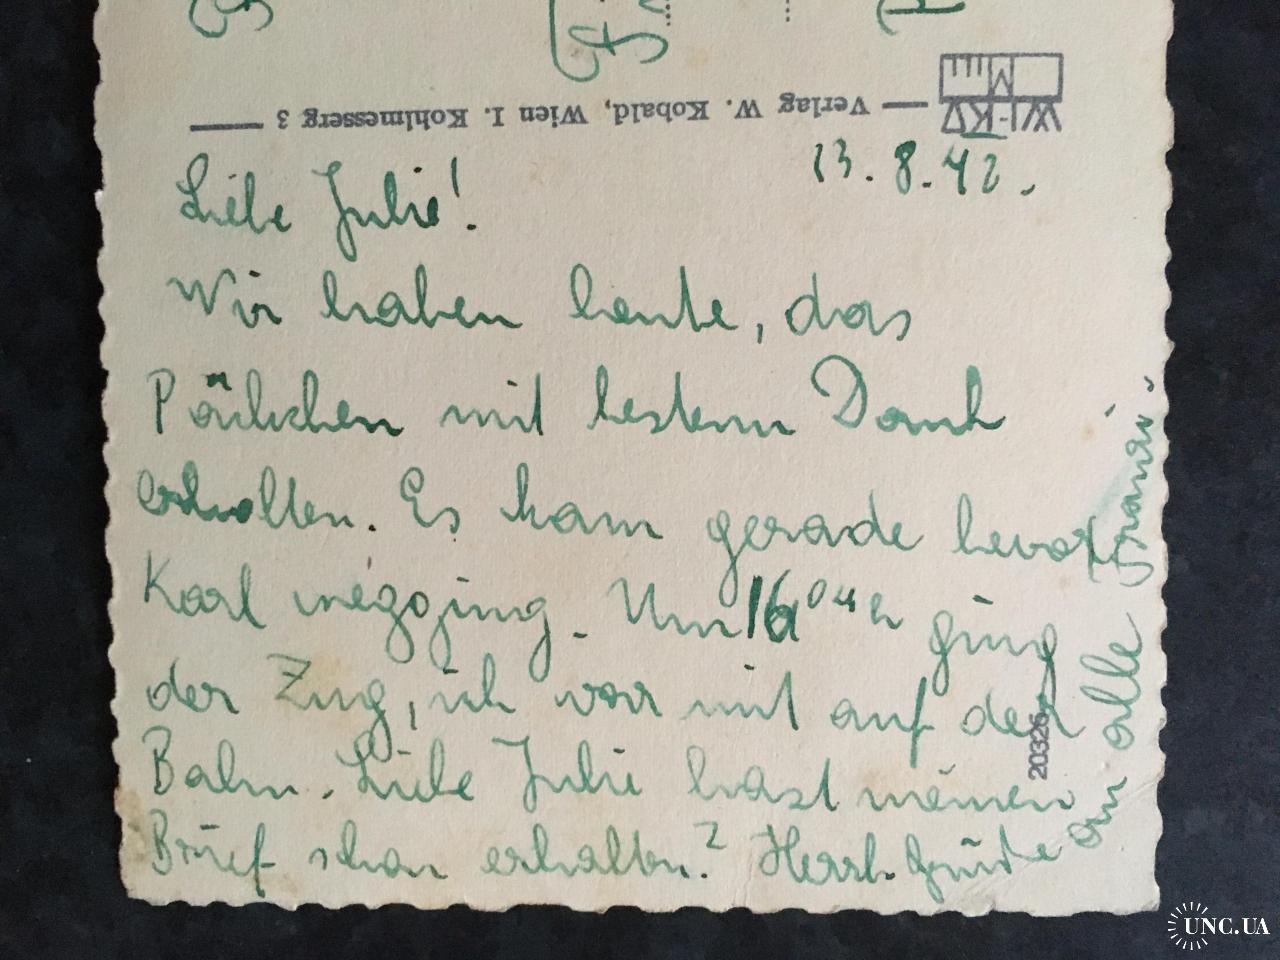 — Verlag W. Kobald, Wien I. Kohlmesserg 3 —
WI-KO
13.8.42.
Liebe Julie!
Wir haben heute, das
Päckchen mit bestem Dank
erhalten. Es kam gerade bevor
Karl wegging. Um 16 04 h ging
der Zug, ich war mit auf der
Bahn. Liebe Julie hast meinen
Brief schon erhalten? Herzl. Grüße
an alle
20326
UNC.UA